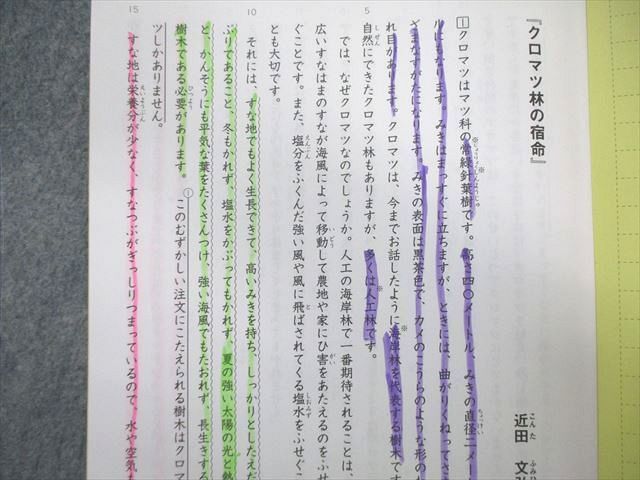 『クロマツ林の宿命』
近田 文弘
こんた ふみひ
①クロマツはマツ科の※常緑針葉樹です。高さ四〇メートル、みきの直径二メー
ルにもなります。みきはまっすぐに立ちますが、ときには、曲がりくねってさ
ざまなすがたになります。みきの表面は黒茶色で、カメのこうらのような形の
れ目があります。クロマツは、今までお話したように※海岸林を代表する樹木です
自然にできたクロマツ林もありますが、多くは※人工林です。
5
では、なぜクロマツなのでしょうか。人工の海岸林で一番期待されることは、
広いすなはまのすなが海風によって移動して農地や家にひ害をあたえるのをふせ
ぐことです。また、塩分をふくんだ強い風や風に飛ばされてくる塩水をふせぐこ
とも大切です。
それには、すな地でもよく生長できて、高いみきを持ち、しっかりとしたえだ
10
ぶりであること、冬もかれず、塩水をかぶってもかれず、夏の強い太陽の光と熱
と、かんそうにも平気な葉をたくさんつけ、強い海風でもたおれず、長生きする
樹木である必要があります。①このむずかしい注文にこたえられる樹木はクロマ
ツしかありません。
すな地は栄養分が少なく、すなつぶがぎっしりつまっているので、水や空気も
15